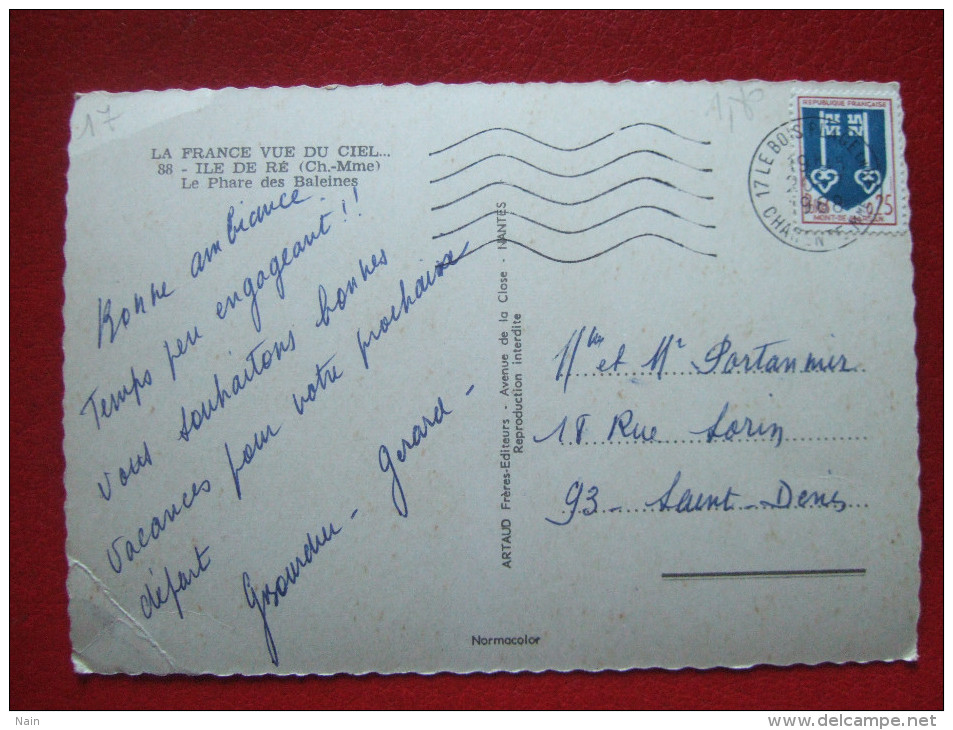 17
1,70
LA FRANCE VUE DU CIEL...
88 - ILE DE RÉ (Ch.-Mme)
Le Phare des Baleines
Bonne ambiance.
Temps peu engageant!!
Vous souhaitons bonnes
vacances pour votre prochaine
départ
Gérard -
ARTAUD Frères-Editeurs - Avenue de la Close - NANTES
Reproduction interdite
REPUBLIQUE FRANÇAISE
0,25
MONT-DE-MARSAN
17 LE BOIS PLAGE
1968
CHARENTE
Mme et Mr Portanmer
18 Rue Sorin
93 - Saint-Denis
Normacolor
Nain
delcampe.net